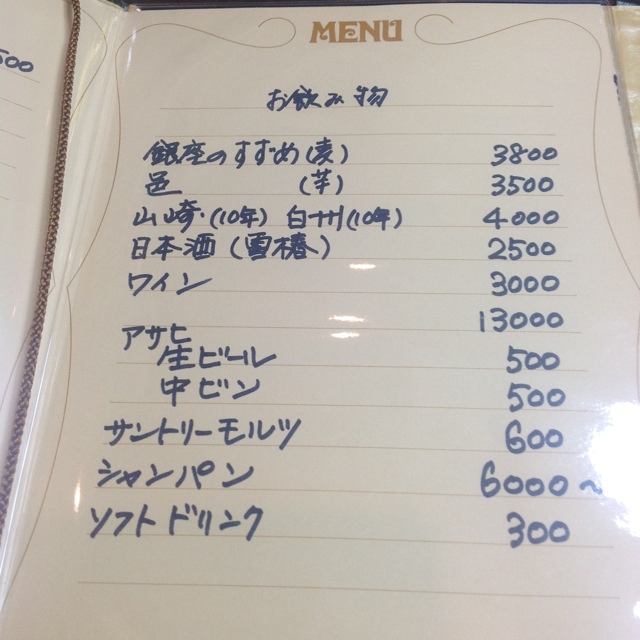 500
MENU
お飲み物
銀座のすずめ(麦) 3800
邑 (芋) 3500
山崎(10年) 白州(10年) 4000
日本酒(雪椿) 2500
ワイン 3000
13000
アサヒ
生ビール 500
中ビン 500
サントリーモルツ 600
シャンパン 6000~
ソフトドリンク 300